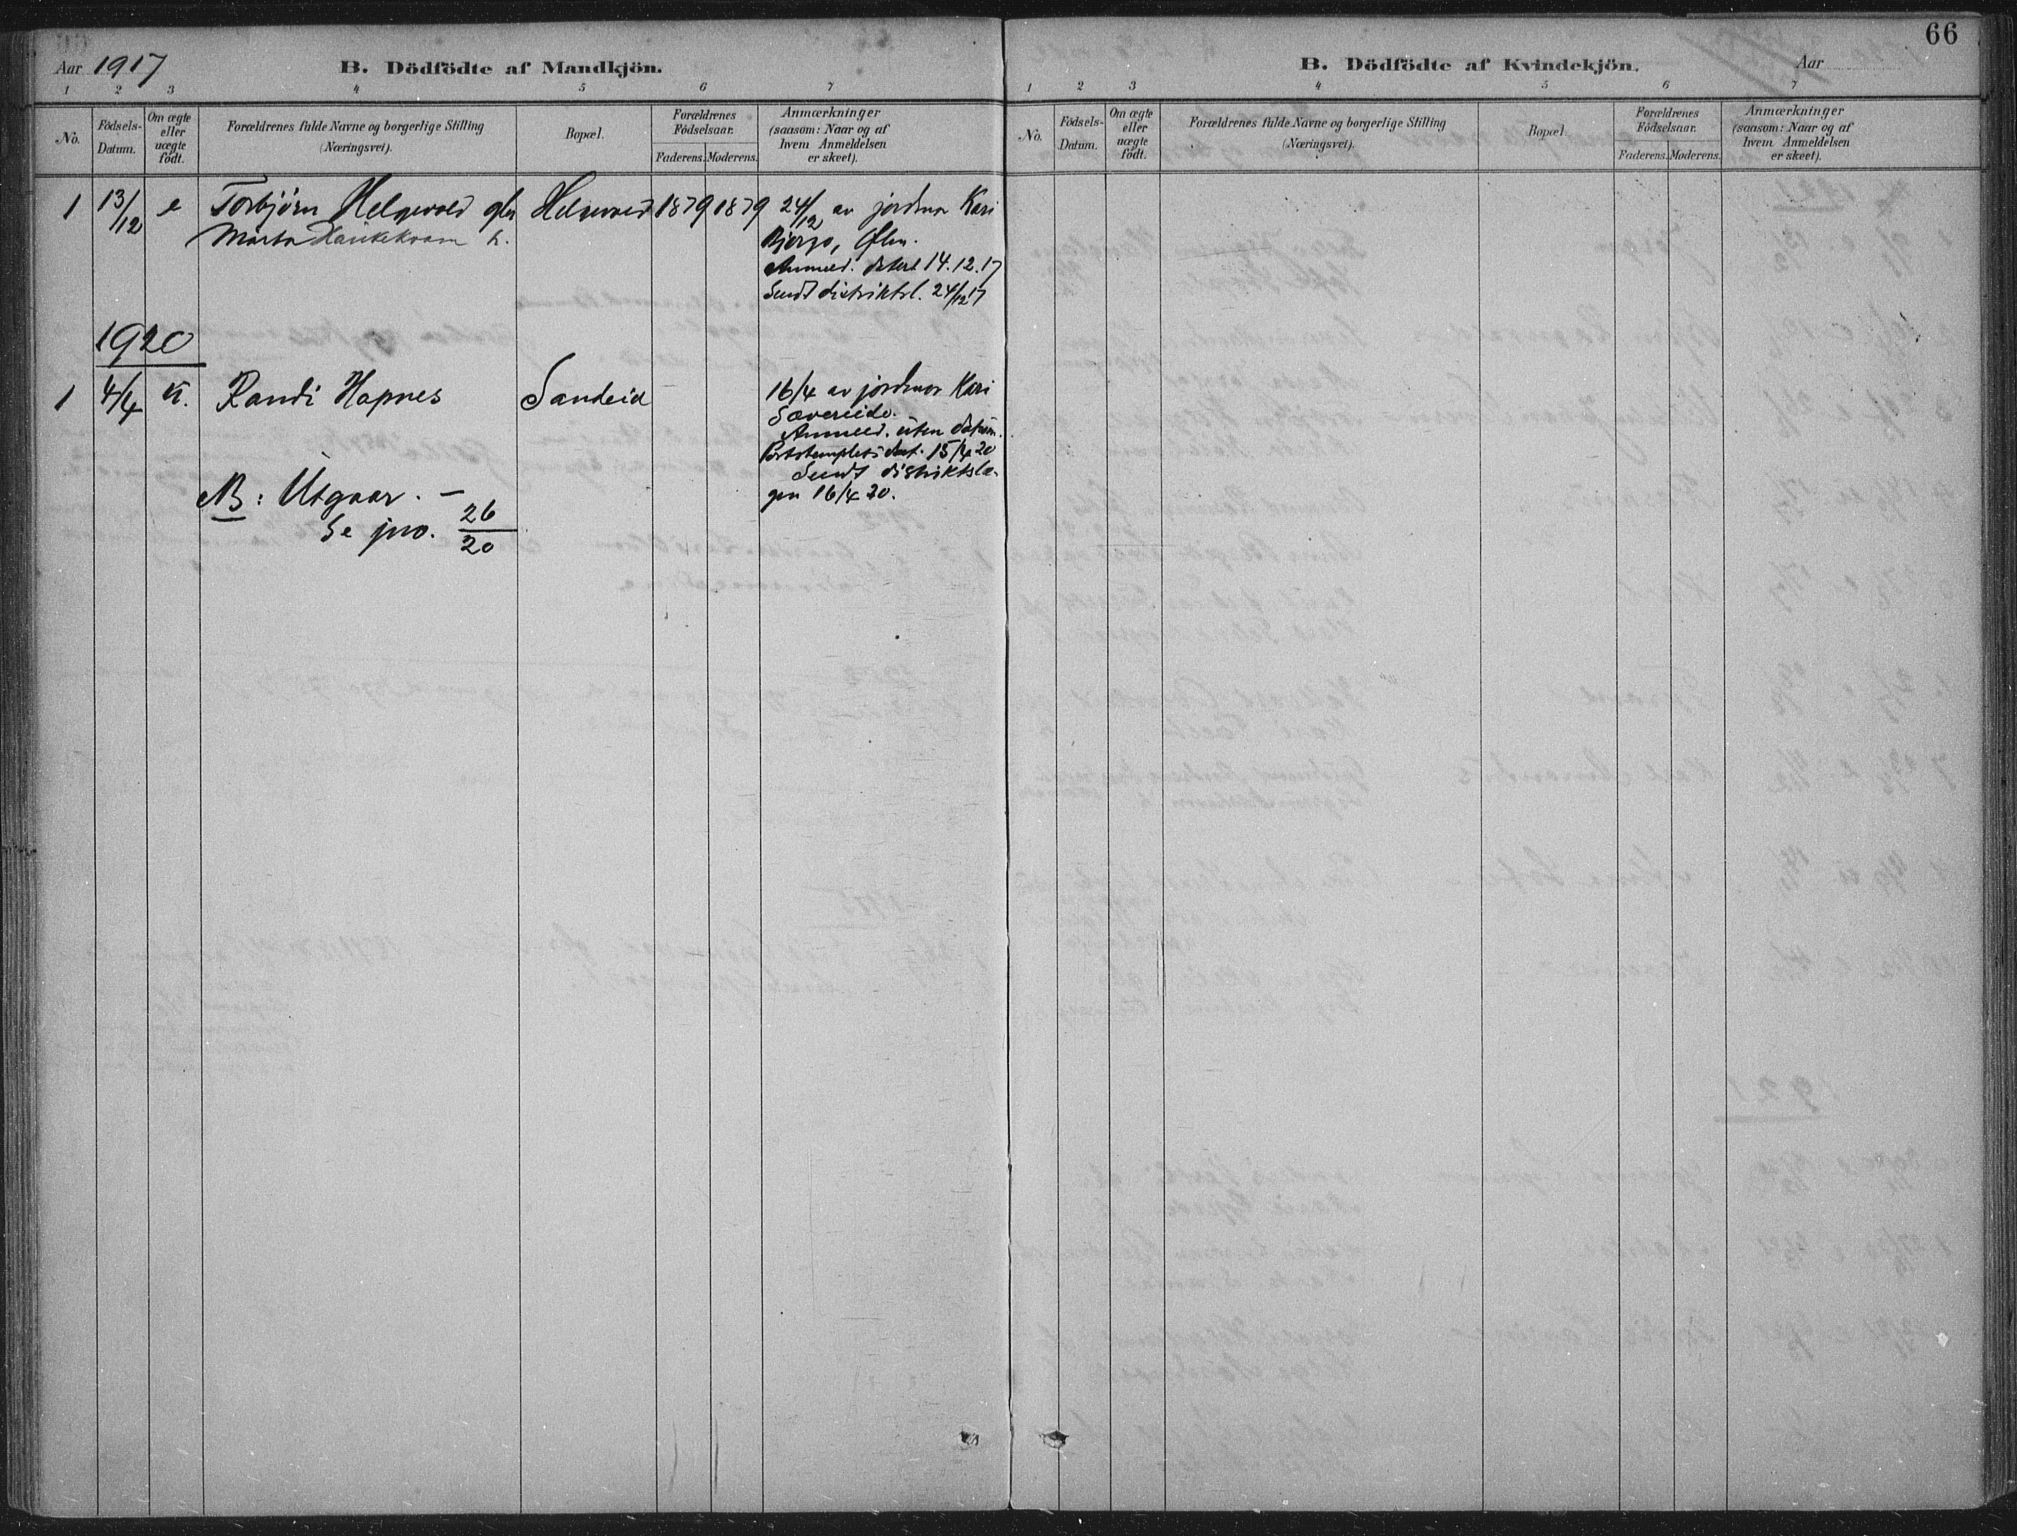 66
Aar 1917
B. Dödfödte af Mandkjön.
1 2 3 4 5 6 7
No.
Födsels-
Datum.
Om ægte
eller
uægte
födt.
Forældrenes fulde Navne og borgerlige Stilling
(Næringsvei).
Bopæl.
Forældrenes
Födselsaar.
Faderens. Moderens.
Anmærkninger
(saasom: Naar og af
hvem Anmeldelsen
er skeet).
1 13/12 e Torbjörn Helgevold gbr Helgevold 1879 1879 24/12 av jordmor Kari
Marta Haukekvam h.
Bjergo, Ølen.
Anmeld. datert 14.12.17
Sendt distriktsl. 24/12 17
1920
1 4/4 Randi Hapnes Sandeid 16/4 av jordmor Kari
Sævereide.
Anmeld. uten datum.
Poststemplets dat. 15/4 20
Sendt distriktslæ-
gen 16/4 20.
NB: Utgaar. –
Se jno. 26/20
B. Dödfödte af Kvindekjön.
Aar
1 2 3 4 5 6 7
No.
Födsels-
Datum.
Om ægte
eller
uægte
födt.
Forældrenes fulde Navne og borgerlige Stilling
(Næringsvei).
Bopæl.
Forældrenes
Födselsaar.
Faderens. Moderens.
Anmærkninger
(saasom: Naar og af
hvem Anmeldelsen
er skeet).